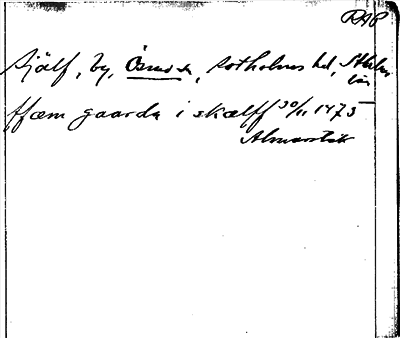 RAP
Själf, by, Ösmo sn, Sotholms hd, Sthlms
län
ffæm gaarda i skælff 30/11 1475
Almarstäk